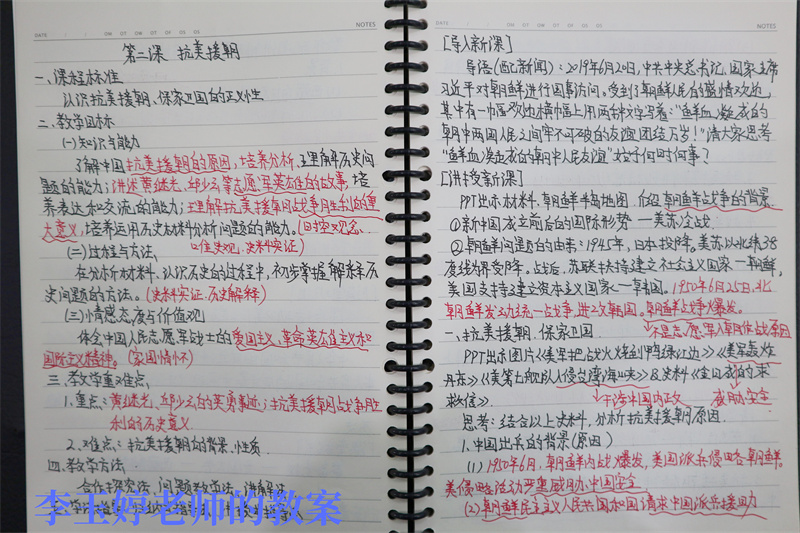 DATE
NOTES
第二课 抗美援朝
一、课程标准
认识抗美援朝、保家卫国的正义性
二、教学目标
(一)知识与能力
了解中国抗美援朝的原因,培养分析、理解历史问
题的能力;讲述黄继光、邱少云等志愿军英雄的故事,培
养表达和交流的能力;理解抗美援朝战争胜利的重
大意义,培养运用历史材料分析问题的能力。(时空观念、
(二)过程与方法、 唯物史观、史料实证)
在分析材料、认识历史的过程中,初步掌握解释历
史问题的方法。(史料实证、历史解释)
(三)情感态度与价值观
体会中国人民志愿军战士的爱国主义、革命英雄主义和
国际主义精神。(家国情怀)
三、教学重难点
1.重点:黄继光、邱少云的英勇事迹;抗美援朝战争胜
利的历史意义
2.难点:抗美援朝的背景、性质
四、教学方法
合作探究法、问题教学法、讲解法
李玉婷老师的教案
NOTES
[导入新课]
导语(配新闻):2019年6月20日,中共中央总书记、国家主席
习近平对朝鲜进行国事访问。受到了朝鲜人民的热情欢迎,
其中有一幅欢迎横幅上用两种文字写着:“鲜血凝成的
朝中两国人民之间牢不可破的友谊团结万岁!”请大家思考
“鲜血凝成的朝中人民友谊”始于何时何事?
[讲授新课]
PPT出示材料,朝鲜半岛地图,介绍朝鲜战争的背景
①新中国成立前后的国际形势—美苏冷战
②朝鲜问题的由来:1945年,日本投降。美苏以北纬38
度线为界受降。战后,苏联扶持建立社会主义国家—朝鲜,
美国支持建立资本主义国家—韩国。1950年6月25日,北
朝鲜发动统一战争,进攻韩国。朝鲜战争爆发。
一、抗美援朝、保家卫国 →不是志愿军入朝作战原因
PPT出示图片《美军把战火烧到鸭绿江边》《美军轰炸
丹东》《美第七舰队入侵台湾海峡》&史料《金日成的求
救信》 →干涉中国内政 威胁安全
思考:结合以上史料,分析抗美援朝原因
1.中国出兵的背景(原因)
(1)1950年6月,朝鲜内战爆发,美国派兵侵略朝鲜。
美侵略活动严重威胁中国安全
(2)朝鲜民主主义人民共和国请求中国派兵援助